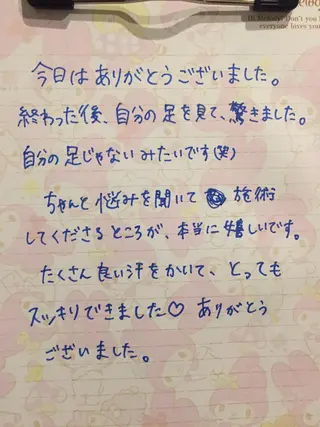 Hi Melody! Don't you k
everyone loves your
今日はありがとうございました。
終わった後、自分の足を見て、驚きました。
自分の足じゃないみたいです(笑)
ちゃんと悩みを聞いて 施術
してくださるところが、本当に嬉しいです。
たくさん良い汗をかいて、とっても
スッキリできました♡ ありがとう
ございました。